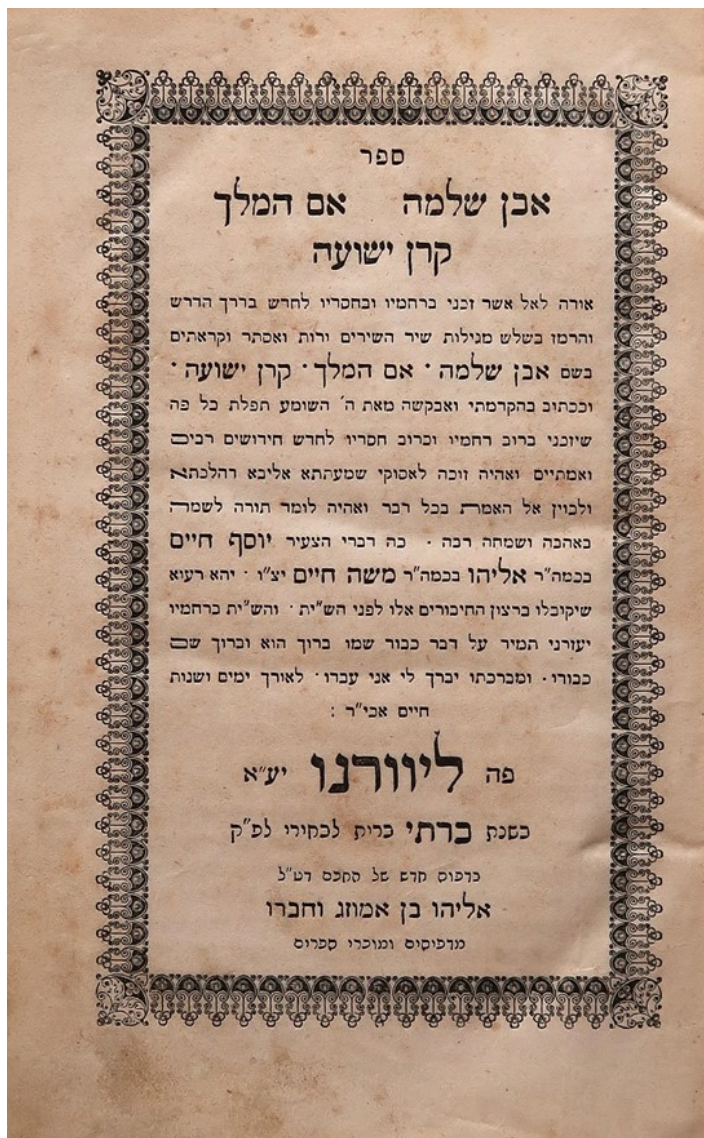 ספר
אבן שלמה אם המלך
קרן ישועה
אודה לאל אשר זכני ברחמיו ובחסדיו לחדש בדרך הדרש
והרמז בשלש מגילות שיר השירים ורות ואסתר וקראתים
בשם אבן שלמה · אם המלך · קרן ישועה ·
וככתוב בהקדמתי ואבקשה מאת ה׳ השומע תפלת כל פה
שיזכני ברוב רחמיו וברוב חסדיו לחדש חידושים רבים
ואמתיים ואהיה זוכה לאסוקי שמעתתא אליבא דהלכתא
ולכוין אל האמת בכל דבר ואהיה לומד תורה לשמה
באהבה ושמחה רבה · כה דברי הצעיר יוסף חיים
בכמה״ר אליהו בכמה״ר משה חיים יצ״ו · יהא רעוא
שיקובלו ברצון החיבורים אלו לפני הש״ית · והש״ית ברחמיו
יעזרני תמיד על דבר כבוד שמו ברוך הוא וברוך שם
כבודו · ומברכתו יברך לי אני עבדו · לאורך ימים ושנות
חיים אכי״ר :
פה ליוורנו יע״א
בשנת כרתי ברית לבחירי לפ״ק
בדפוס חדש של החכם דט״ל
אליהו בן אמוזג וחברו
מדפיסים ומוכרי ספרים